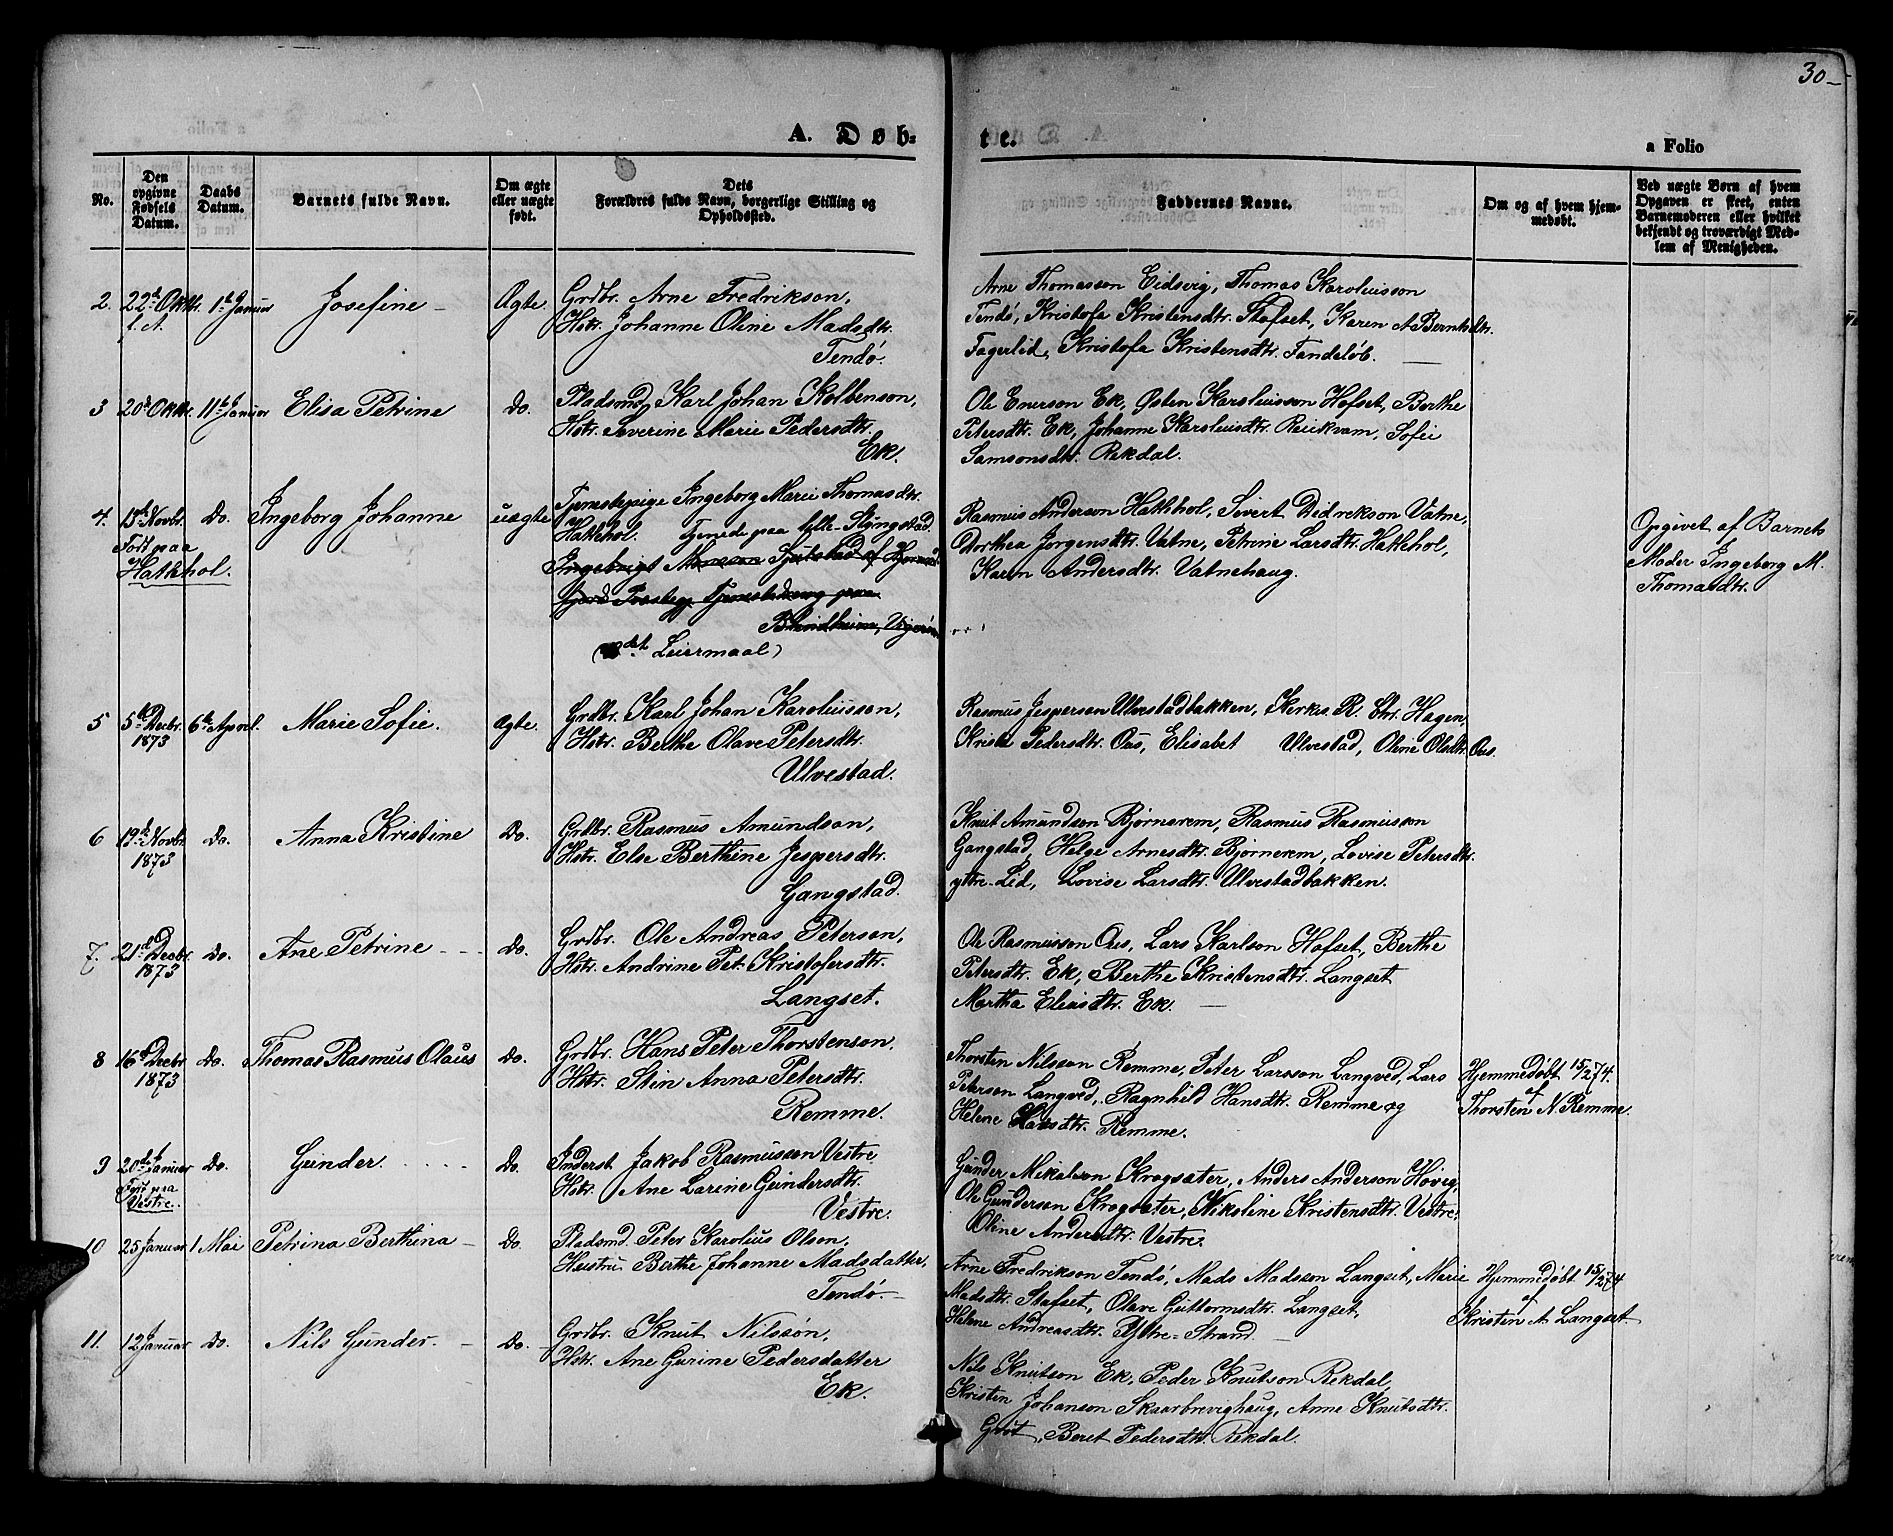 30
A. Døb-
te.
a Folio
No.
Den opgivne Fødsels Datum.
Daabs Datum.
Barnets fulde Navn.
Om ægte eller uægte født.
Dets Forældres fulde Navn, borgerlige Stilling og Opholdssted.
Faddernes Navne.
Om og af hvem hjemmedøbt.
Ved uægte Børn af hvem Opgaven er skeet, enten Barnemoderen eller hvilket bekjendt og troværdigt Medlem af Menigheden.
2. 22d Oktr. f. A. 1ste Januar Josefine Ægte
Grdbr. Arne Fredrikson,
Hstr. Johanne Oline Madsdtr.
Tendö.
Arne Thomassen Eidsvig, Thomas Karoliusson
Tendö, Kristofa Kristensdtr. Stafset, Karen A Berntsdtr.
Fagerlid, Kristofa Kristensdtr. Tandeløb.
3 20d Oktr. 11te Januar Elisa Petrine Do.
Pladsmd Karl Johan Kolbenson,
Hstr. Severine Marie Pedersdtr.
Ek.
Ole Enerson Ek, Østen Karoliusson Hofset, Berthe
Petersdtr. Ek, Johanne Karoliusdtr. Reukvam, Sofie
Samsonsdtr. Rekdal.
4. 15de Novbr. Født paa Hatlehol. Do. Ingeborg Johanne uægte
Tjenestepige Ingeborg Marie Thomasdtr.
Hatlehol. Tjenede paa lille-Slyngstad.
Ingebrigt Monson Sjutstad af Hjørund-
fjord Præstegj. Tjenestedreng paa
Blindheim, Vigøren
(det Leiermaal)
Rasmus Anderson Hatlehol, Sivert Didrekson Vatne,
Dorthea Jørgensdtr. Vatne, Petrine Larsdtr. Hatlehol,
Karen Andersdtr. Vatnehaug.
Opgivet af Barnets
Moder Ingeborg M.
Thomasdtr.
5 5te Decbr. 1873 6te April. Marie Sofie. Ægte.
Grdbr. Karl Johan Karoliusson,
Hstr. Berthe Olave Petersdtr.
Ulvestad.
Rasmus Jesperson Ulvestadbakken, Kirks. R. Chr. Hagen,
Kriste Pedersdtr. Aas, Elisabet Ulvestad, Oline Olsdtr. Aas.
6 19de Novbr. 1873 Do. Anna Kristine Do.
Grdbr. Rasmus Amundson,
Hstr. Else Berthine Jespersdtr.
Gangstad.
Knut Amundson Bjørnerem, Rasmus Rasmusson
Gangstad, Helge Arnesdtr. Bjørnerem, Lovise Petersdtr.
ytre-Lid, Lovise Larsdtr. Ulvestadbakken.
7. 21d Decbr. 1873 Do. Ane Petrine Do.
Grdbr. Ole Andreas Peterson,
Hstr. Andrine Pet. Kristofersdtr.
Langset.
Ole Rasmusson Aas, Lars Karlson Hofset, Berthe
Petersdtr. Ek, Berthe Kristensdtr. Langset
Martha Eliasdtr. Ek.
8 16d Decbr 1873 Do. Thomas Rasmus Olaus Do.
Grdbr. Hans Peter Thorstenson,
Hstr. Stin Anna Petersdtr.
Remme.
Thorsten Nilsson Remme, Peter Larsson Langved, Lars
Peterson Langved, Ragnhild Hansdtr. Remme og
Helene Hansdtr. Remme.
Hjemmedøbt 15/2 74.
af
Thorsten N. Remme.
9 20de Januar Født paa Vestre. Do. Gunder. Do.
Inderst Jakob Rasmusson Vestre
Hstr. Ane Larine Gundersdtr.
Vestre.
Gunder Mikalson Krogsæter, Anders Anderson Høvig,
Ole Gunderson Krogsæter, Nikoline Kristensdtr. Vestre,
Oline Andersdtr. Vestre.
10 25 Januar 1 Mai Petrina Berthina Do.
Pladsmd. Peter Karolius Olson,
Hustru Berthe Johanne Madsdatter,
Tendö.
Arne Fredrikson Tendö, Mads Madsson Langset, Marie
Madsdtr. Stafset, Olave Guttormsdtr. Langset,
Helene Andreasdtr. Ytre-Strand.
Hjemmedøbt 15/2 74
af
Kristen A. Langset.
11. 12 Januar Do. Nils Gunder. Do.
Grdbr. Knut Nilsson,
Hstr. Ane Gurine Pedersdatter
Ek.
Nils Knutson Ek, Peder Knutson Rekdal,
Kristen Johanson Skaarbrevighaug, Anne Knutsdtr.
Beret Pedersdtr. Rekdal.